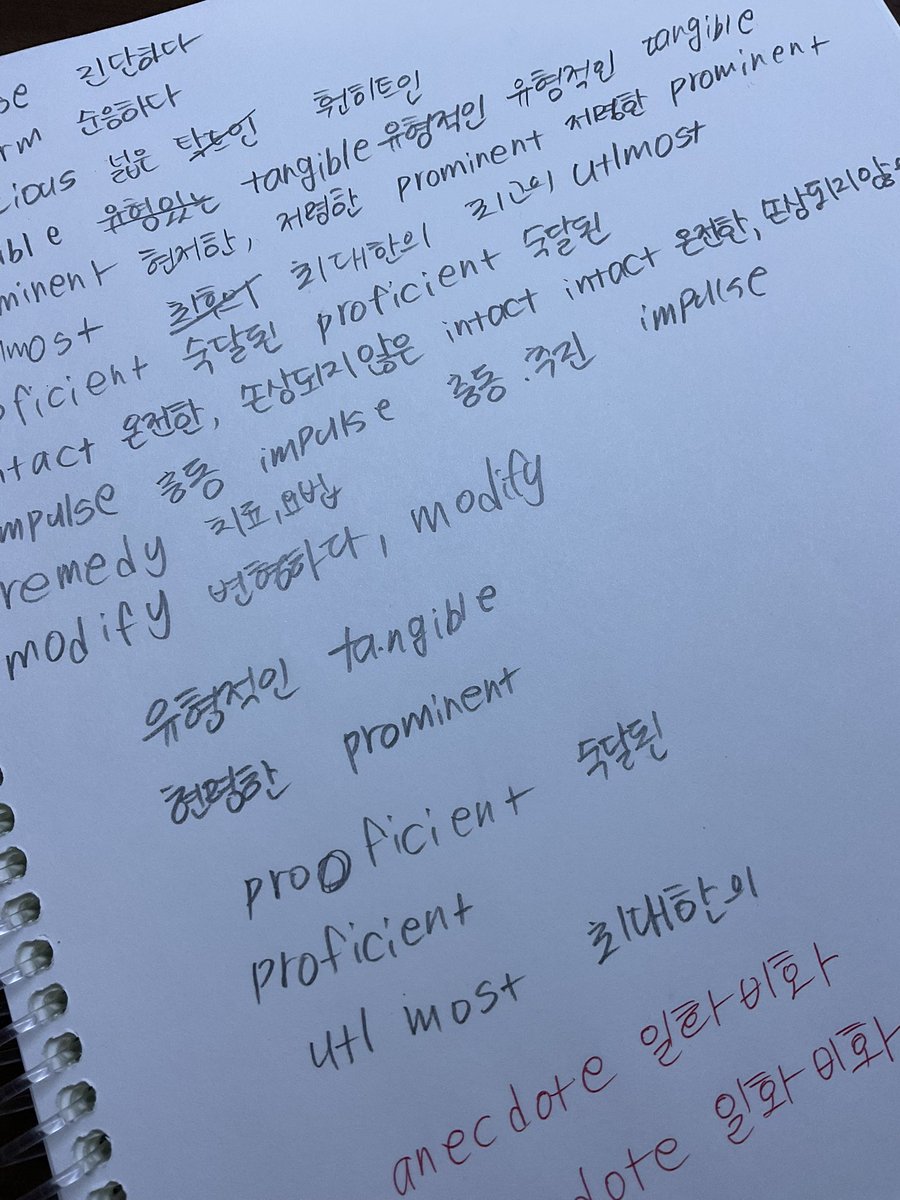 se 진단하다
rm 순응하다
cious 넓은 탁트인 훤히트인
ible 유형있는 tangible 유형적인 유형적인 tangible
minent 현저한, 저명한 prominent 저명한 prominent
lmost 최후의 최대한의 최고의 utlmost
oficient 숙달된 proficient 숙달된
ntact 온전한, 손상되지않은 intact intact 온전한, 손상되지않
mpulse 충동 impulse 충동.추진 impulse
remedy 치료,요법
modify 변형하다, modify
유형적인 tangible
현명한 prominent
proficient 숙달된
proficient
utlmost 최대한의
anecdote 일화 비화
dote 일화 비화